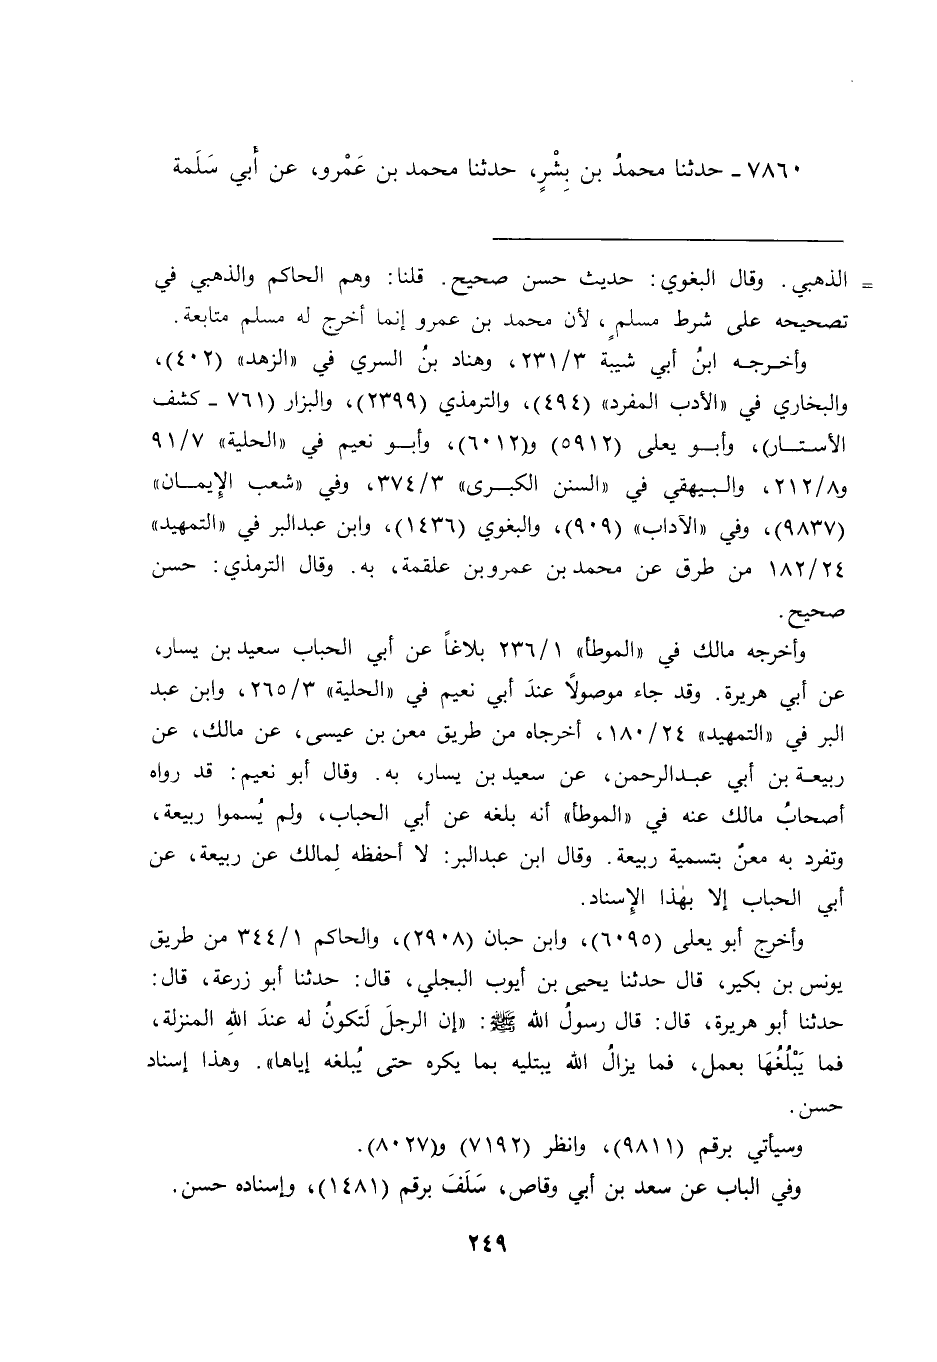 ٧٨٦٠ ـ حدثنا محمدُ بن بِشْرٍ، حدثنا محمد بن عَمْرو، عن أَبي سَلَمة
= الذهبي. وقال البغوي: حديث حسن صحيح. قلنا: وهم الحاكم والذهبي في
تصحيحه على شرط مسلمٍ، لأن محمد بن عمرو إنما أخرج له مسلم متابعة.
وأخرجه ابنُ أبي شيبة ٢٣١/٣، وهناد بنُ السري في «الزهد» (٤٠٢)،
والبخاري في «الأدب المفرد» (٤٩٤)، والترمذي (٢٣٩٩)، والبزار (٧٦١ ـ كشف
الأستار)، وأبو يعلى (٥٩١٢) و(٦٠١٢)، وأبو نعيم في «الحلية» ٩١/٧
و٢١٢/٨، والبيهقي في «السنن الكبرى» ٣٧٤/٣، وفي «شعب الإيمان»
(٩٨٣٧)، وفي «الآداب» (٩٠٩)، والبغوي (١٤٣٦)، وابن عبدالبر في «التمهيد»
١٨٢/٢٤ من طرق عن محمد بن عمرو بن علقمة، به. وقال الترمذي: حسن
صحيح.
وأخرجه مالك في «الموطأ» ٢٣٦/١ بلاغاً عن أبي الحباب سعيد بن يسار،
عن أبي هريرة. وقد جاء موصولًا عندَ أبي نعيم في «الحلية» ٢٦٥/٣، وابن عبد
البر في «التمهيد» ١٨٠/٢٤، أخرجاه من طريق معن بن عيسى، عن مالك، عن
ربيعة بن أبي عبدالرحمن، عن سعيد بن يسار، به. وقال أبو نعيم: قد رواه
أصحابُ مالك عنه في «الموطأ» أنه بلغه عن أبي الحباب، ولم يُسموا ربيعة،
وتفرد به معنٌ بتسمية ربيعة. وقال ابن عبدالبر: لا أحفظه لِمالك عن ربيعة، عن
أبي الحباب إلا بهٰذا الإِسناد.
وأخرج أبو يعلى (٦٠٩٥)، وابن حبان (٢٩٠٨)، والحاكم ٣٤٤/١ من طريق
يونس بن بكير، قال حدثنا يحيى بن أيوب البجلي، قال: حدثنا أبو زرعة، قال:
حدثنا أبو هريرة، قال: قال رسولُ الله ﷺ: «إن الرجلَ لَتكونُ له عندَ اللهِ المنزلة،
فما يَبْلُغُهَا بعمل، فما يزالُ الله يبتليه بما يكره حتى يُبلغه إياها». وهذا إسناد
حسن.
وسيأتي برقم (٩٨١١)، وانظر (٧١٩٢) و(٨٠٢٧).
وفي الباب عن سعد بن أبي وقاص، سَلَفَ برقم (١٤٨١)، وإسناده حسن.
٢٤٩